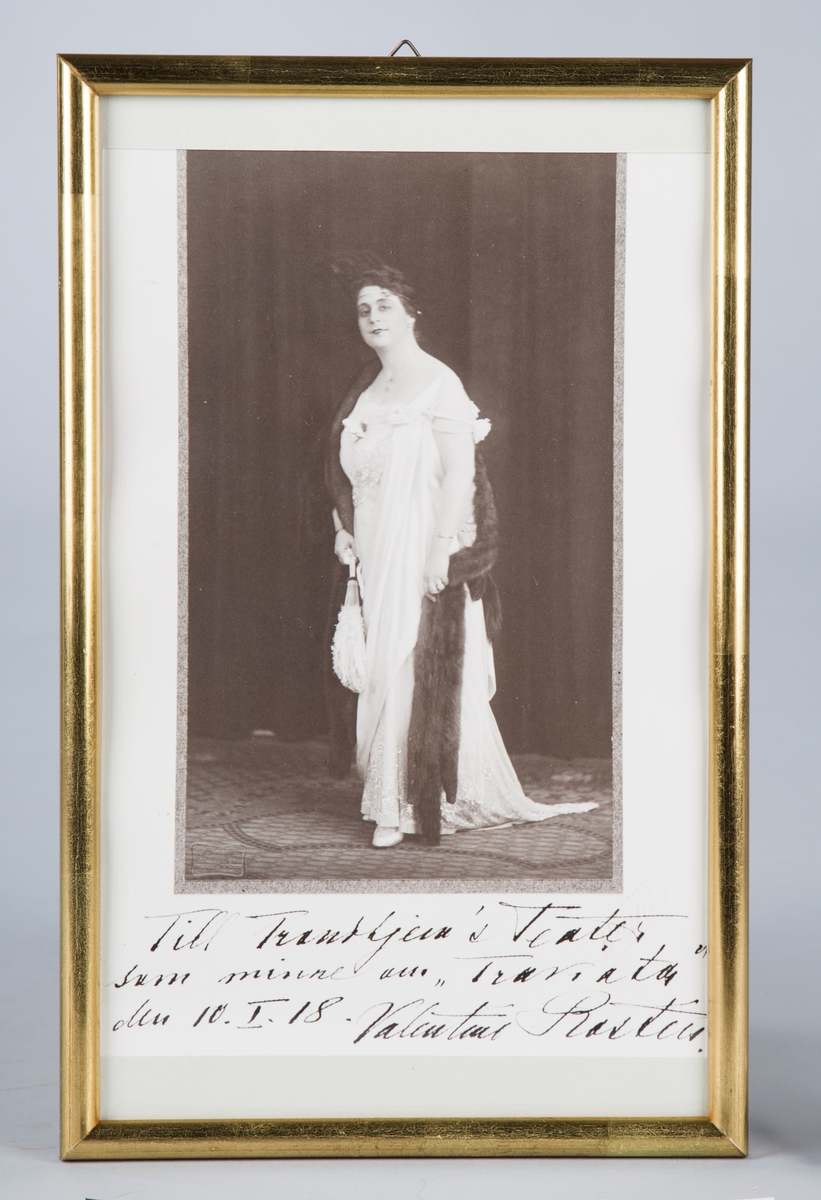 Till Trondhjem's Teater
som minne om „Traviata"
den 10. I. 18. Valentine Rostin.